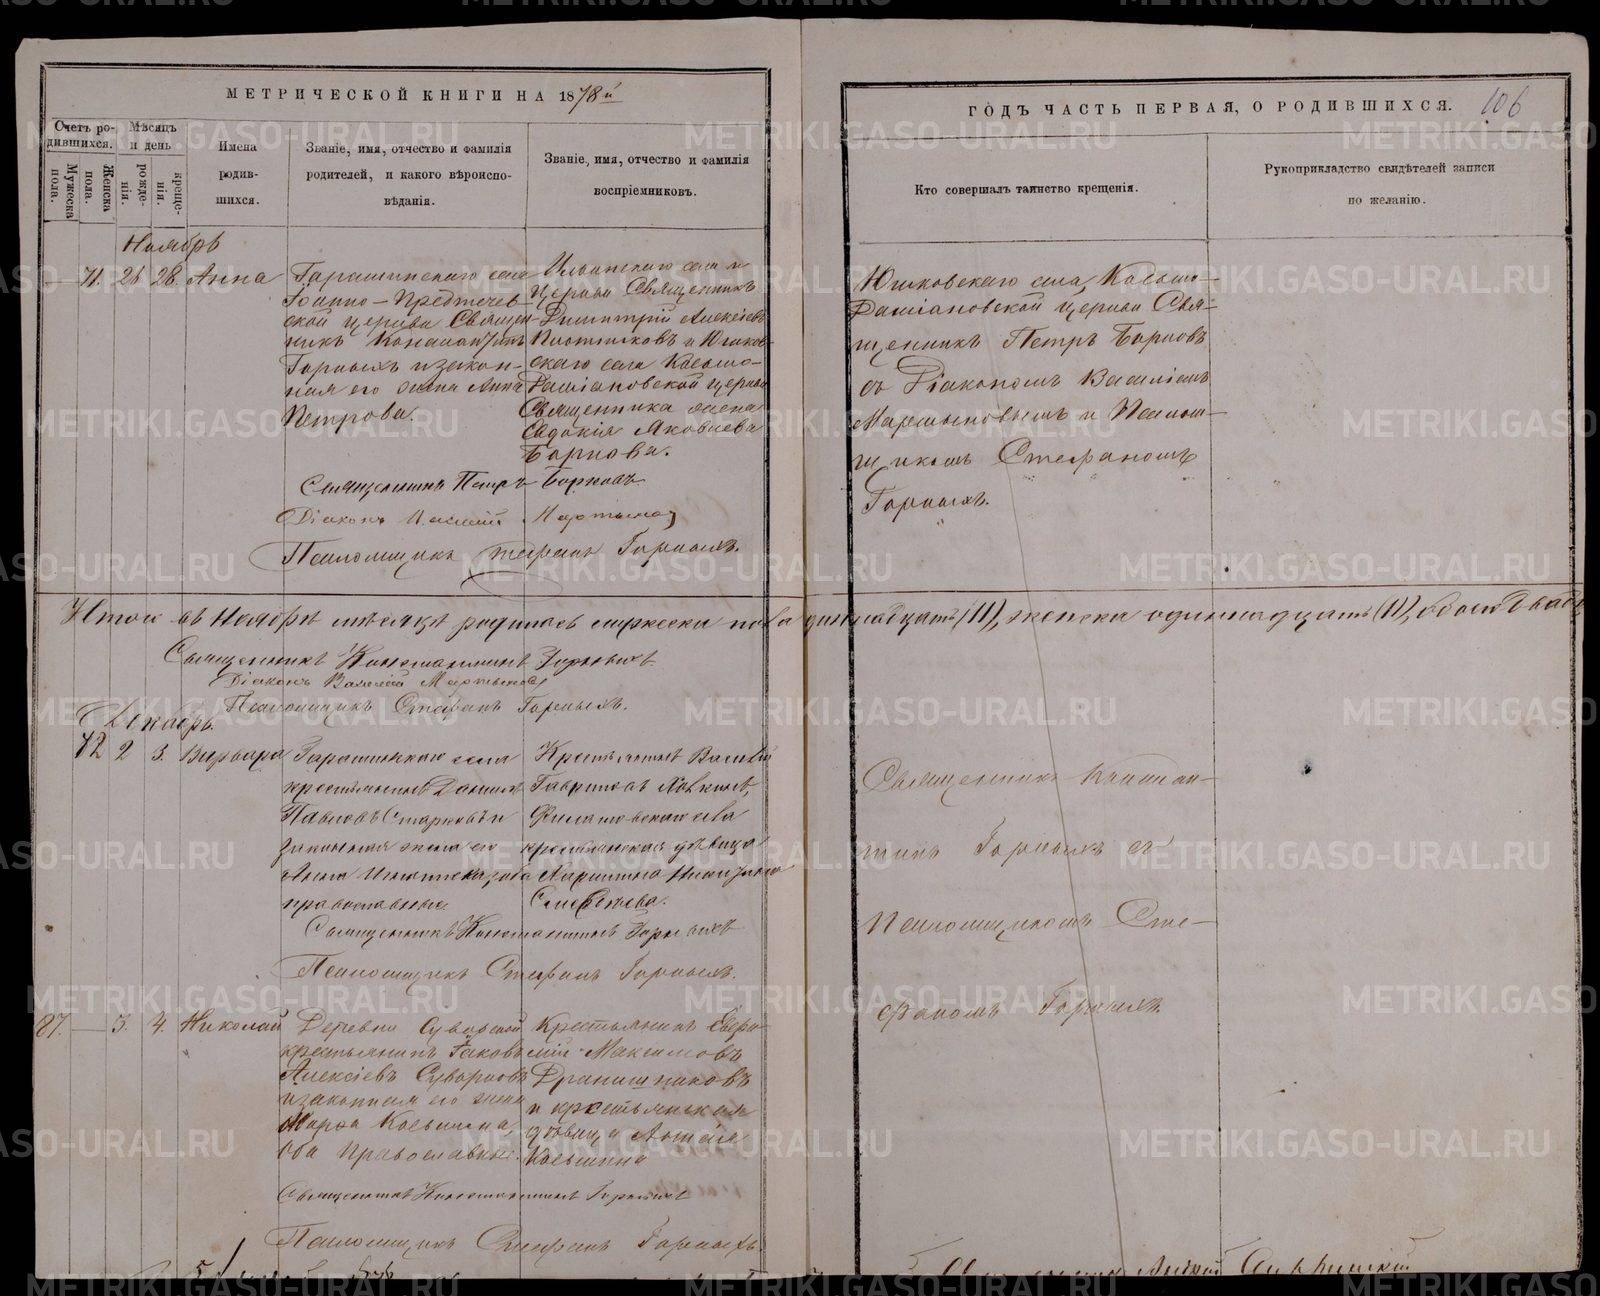 МЕТРИЧЕСКОЙ КНИГИ НА 1878й
ГОДЪ ЧАСТЬ ПЕРВАЯ, О РОДИВШИХСЯ.
106
Счетъ ро-
дившихся.
Мужеска
пола.
Женска
пола.
Мѣсяцъ
и день
рожде-
нія.
креще-
нія.
Имена
родив-
шихся.
Званіе, имя, отчество и фамилія
родителей, и какого вѣроиспо-
вѣданія.
Званіе, имя, отчество и фамилія
воспріемниковъ.
Кто совершалъ таинство крещенія.
Рукоприкладство свидѣтелей записи
по желанію.
Ноябрь
— 71. 26 28. Анна
Гарашинскаго села
Іоанно-Предтечев-
ской церкви Священ-
никъ Константинъ
Горныхъ и закон-
ная его жена Анна
Петрова.
Ильинскаго села
церкви Священникъ
Димитрій Алексіевъ
Плотниковъ и Юшков-
скаго села Косьмо-
Даміановской церкви
Священника жена
Евдокія Яковлева
Юшковскаго села, Косьмо-
Даміановской церкви Свя-
щенникъ Петръ
съ Діакономъ Василіемъ
Мартыновымъ и Псалом-
щикомъ Стефаномъ
Горныхъ.
Священникъ Петръ
Діаконъ Василій Мартыновъ
Псаломщикъ Стефанъ Горныхъ.
Итого въ Ноябрѣ мѣсяцѣ родилось мужеска пола одиннадцать (11), женска одиннадцать (11), обоего
Священникъ Константинъ Горныхъ
Діаконъ Василій Мартыновъ
Псаломщикъ Стефанъ Горныхъ.
Декабрь.
72 2 3. Варвара
Гарашинскаго села
крестьянинъ Даніилъ
Павловъ Старковъ и
законная жена его
Анна
православные
Крестьянинъ Василій
Гавриловъ
села
крестьянская дѣвица
Священникъ Констан-
тинъ Горныхъ съ
Псаломщикомъ Сте-
фаномъ Горныхъ
Священникъ Константинъ Горныхъ
Псаломщикъ Стефанъ Горныхъ.
87. — 3. 4. Николай
Деревни
крестьянинъ Іаковъ
Алексіевъ Суворовъ
и законная его жена
Марфа Косьмина,
оба православные.
Крестьянинъ Евге-
ній Максимовъ
Дранишниковъ
и крестьянская
дѣвица
Косьмина
Священникъ Константинъ Горныхъ
Псаломщикъ Стефанъ Горныхъ.
METRIKI.GASO-URAL.RU